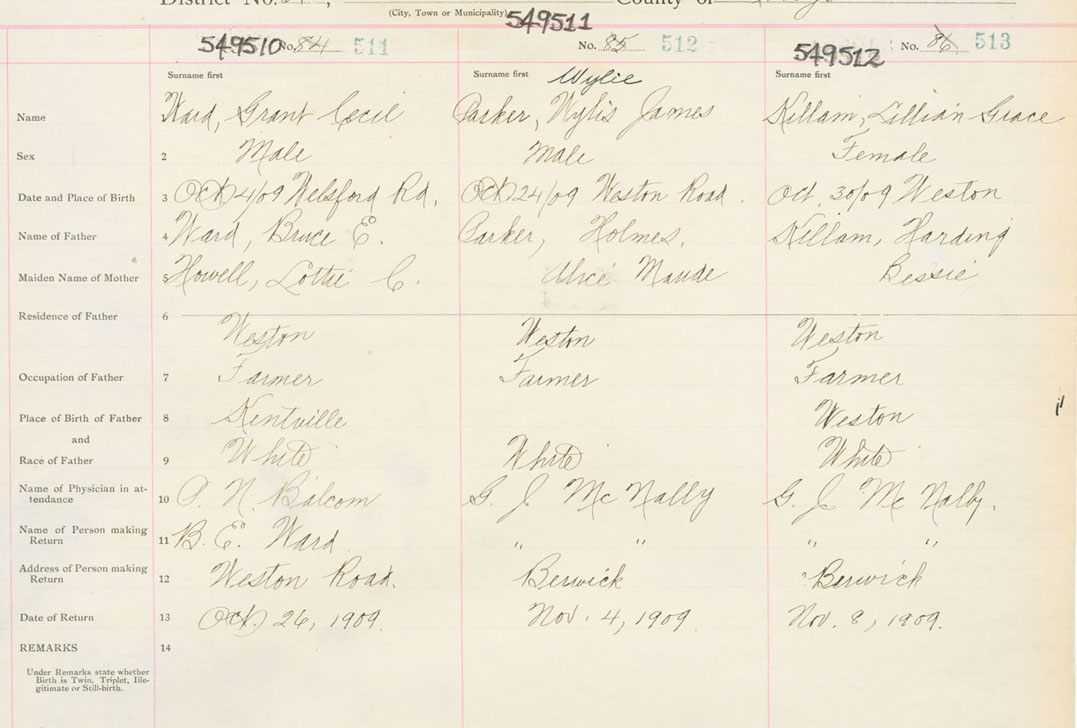 District No. County of
(City, Town or Municipality)
549510 No. 84 511 549511 No. 85 512 549512 No. 86 513
Surname first Surname first Wylie Surname first
Name Ward, Grant Cecil Parker, Wylis James Killam, Lillian Grace
Sex 2 Male Male Female
Date and Place of Birth 3 Oct 4/09 Welsford Rd. Oct 24/09 Weston Road. Oct. 30/09 Weston
Name of Father 4 Ward, Bruce E. Parker, Holmes. Killam, Harding
Maiden Name of Mother 5 Howell, Lottie C. Alice Maude Bessie
Residence of Father 6
Weston Weston Weston
Occupation of Father 7 Farmer Farmer Farmer
Place of Birth of Father 8 Kentville Weston
and
Race of Father 9 White White White
Name of Physician in at-
tendance 10 P. N. Balcom G. J. McNally G. J. McNally.
Name of Person making
Return 11 B. E. Ward " " " "
Address of Person making
Return 12 Weston Road. Berwick Berwick
Date of Return 13 Oct. 26, 1909. Nov. 4, 1909 Nov. 8, 1909.
REMARKS 14
Under Remarks state whether
Birth is Twin, Triplet, Ille-
gitimate or Still-birth.